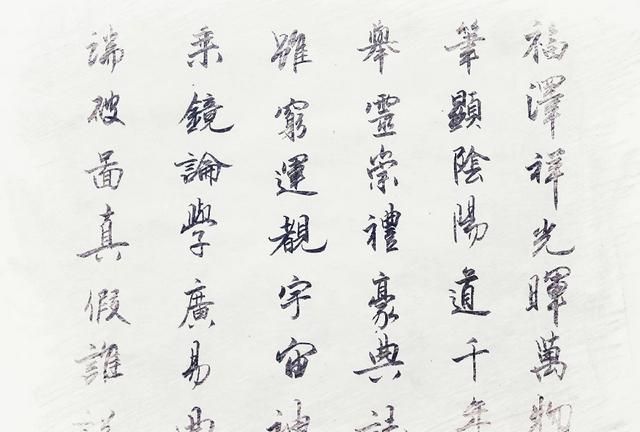 福澤祥光暉萬物
筆顯陰陽道千年
舉靈崇禮豪典
雖窮運觀宇宙神
乘鏡論學廣易典
端破圖真假誰説